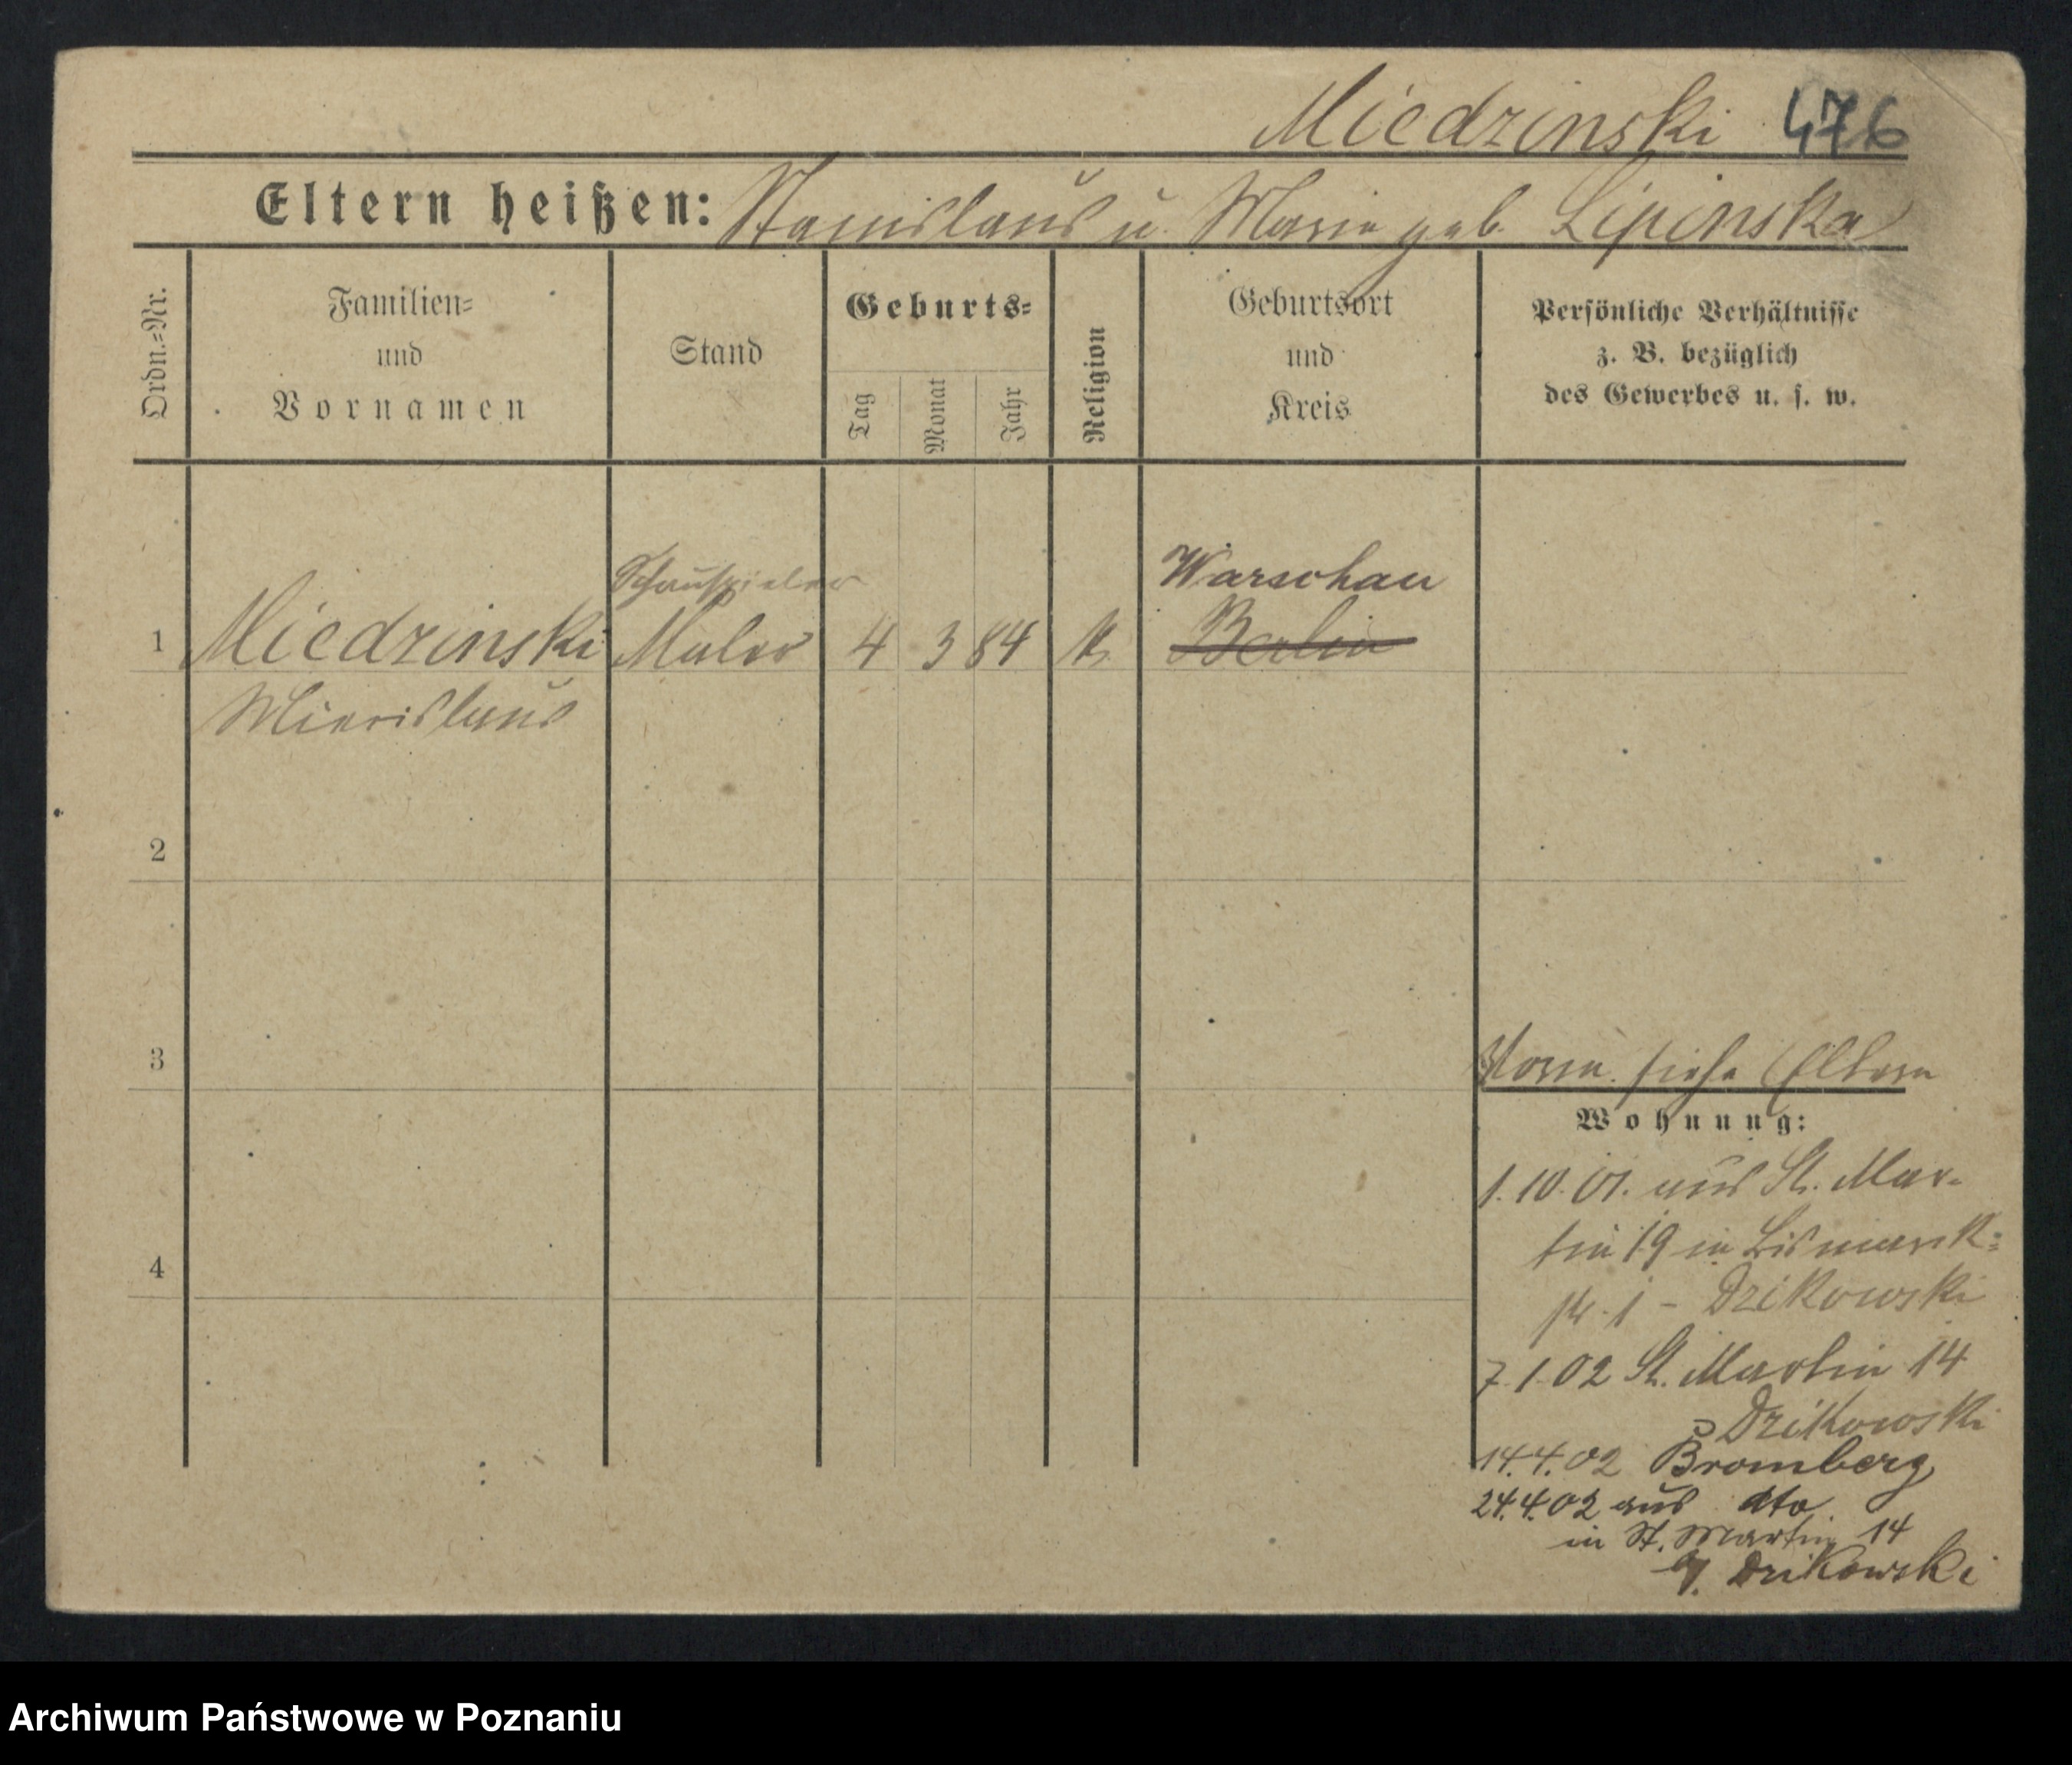 Miedzinski 476
Eltern heißen: Stanislaus u. Marie geb. Lipinska
Ordn.=Nr.
Familien=
und
Vornamen
Stand
Geburts=
Tag
Monat
Jahr
Religion
Geburtsort
und
Kreis
Persönliche Verhältnisse
z. B. bezüglich
des Gewerbes u. s. w.
Schauspieler
Warschau
1 Miedzinski Maler 4 3 84 k. Berlin
Miecislaus
2
3
Vorm. siehe Eltern
Wohnung:
1.10.01. aus St. Mar-
tin 19 in Bismarck=
str. 1 - Drikowski
4
7.1.02 St. Martin 14
Drikowski
14.4.02 Bromberg
24.4.02 aus dto
in St. Martin 14
Drikowski
Archiwum Państwowe w Poznaniu